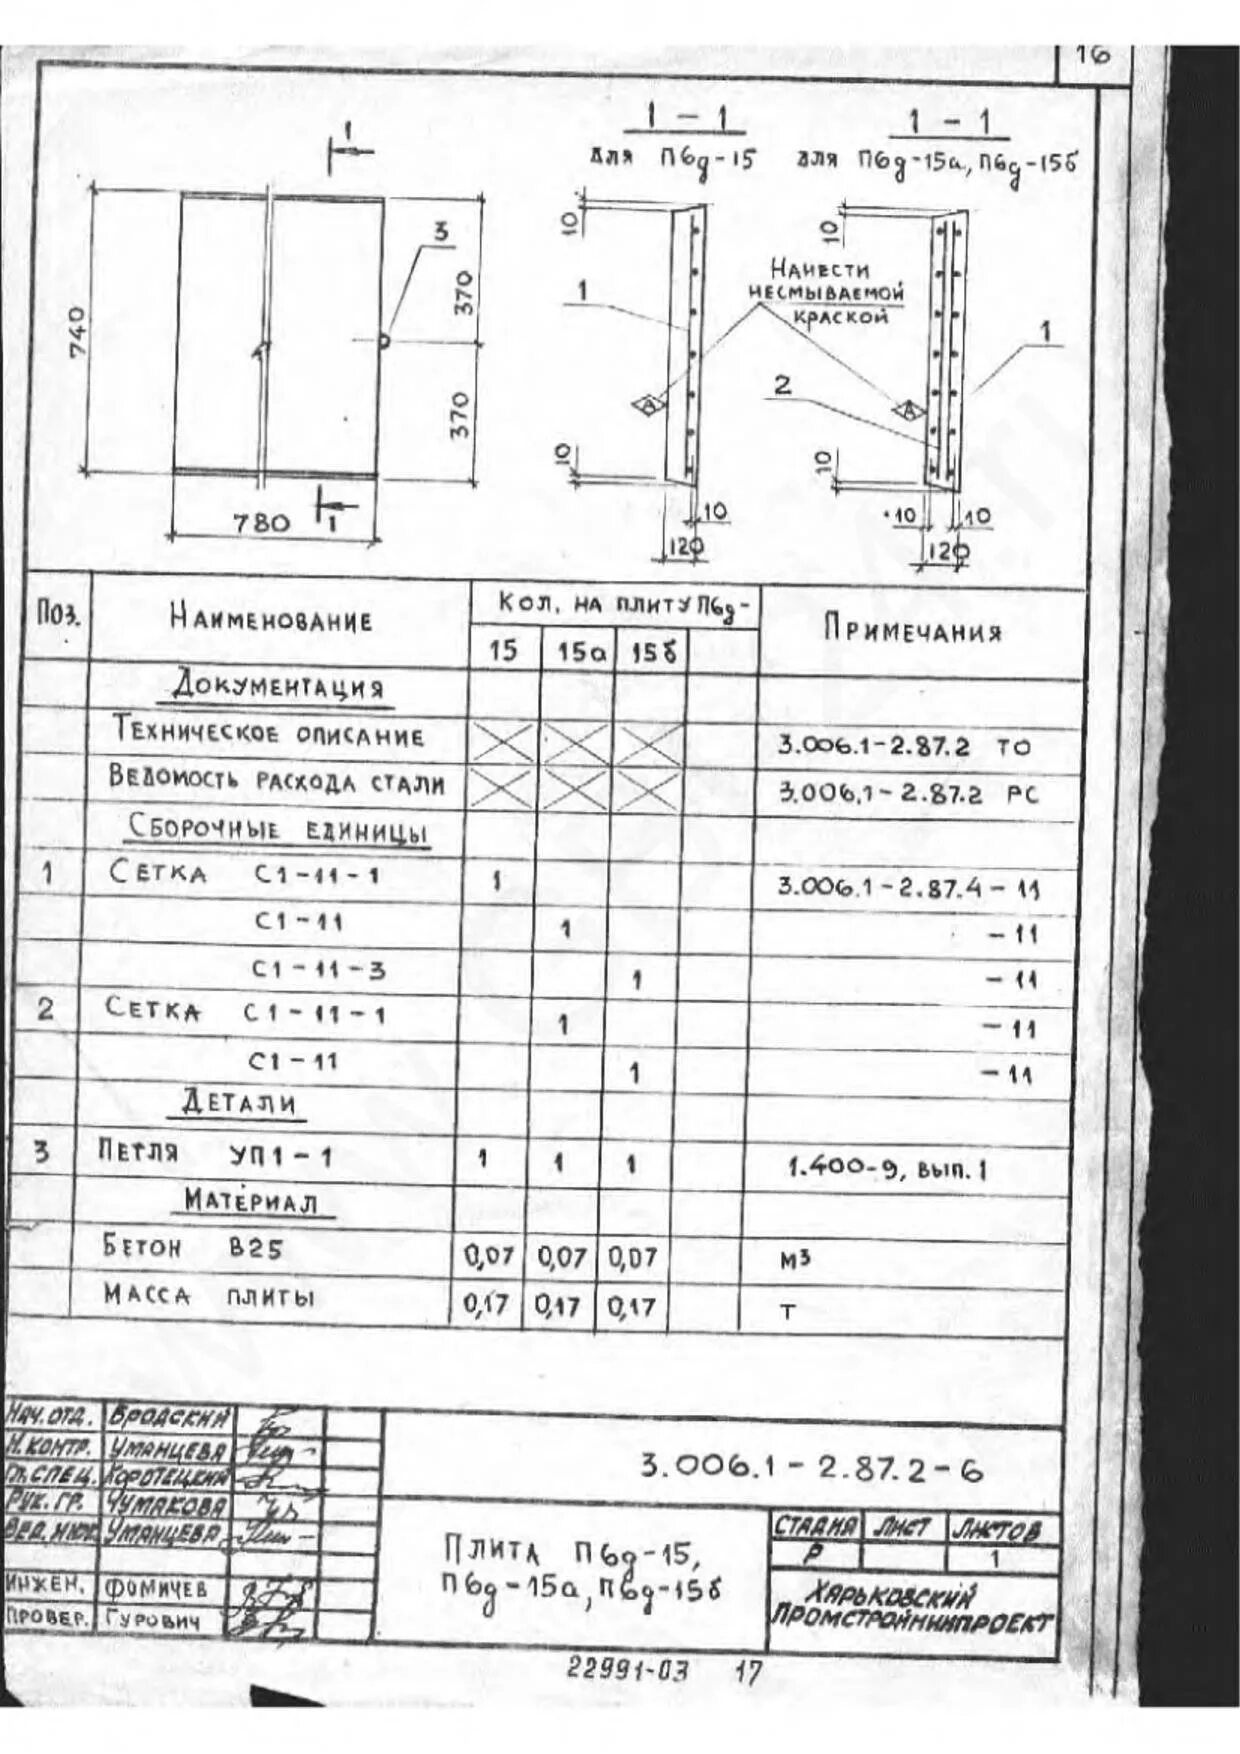 16
1 - 1
для П6д-15
1 - 1
для П6д-15а, П6д-15б
1
3
740
370
370
780
1
10
1
Нанести
несмываемой
краской
А
10
10
120
10
1
2
А
10
10
10
120
Поз.
Наименование
Кол. на плиту П6д-
15
15а
15б
Примечания
Документация
Техническое описание
3.006.1-2.87.2 ТО
Ведомость расхода стали
3.006.1-2.87.2 РС
Сборочные единицы
1 Сетка С1-11-1 1 3.006.1-2.87.4-11
С1-11 1 -11
С1-11-3 1 -11
2 Сетка С1-11-1 1 -11
С1-11 1 -11
Детали
3 Петля УП1-1 1 1 1 1.400-9, вып.1
Материал
Бетон В25 0,07 0,07 0,07 м3
Масса плиты 0,17 0,17 0,17 т
Нач.отд. Бродский
Н.контр. Уманцева
Гл.спец. Коротецкий
Рук.гр. Чумакова
Вед.инж. Уманцева
Инжен. Фомичев
Провер. Гурович
3.006.1-2.87.2-6
Плита П6д-15,
П6д-15а, П6д-15б
Стадия Лист Листов
Р 1
Харьковский
Промстройниипроект
22991-03 17